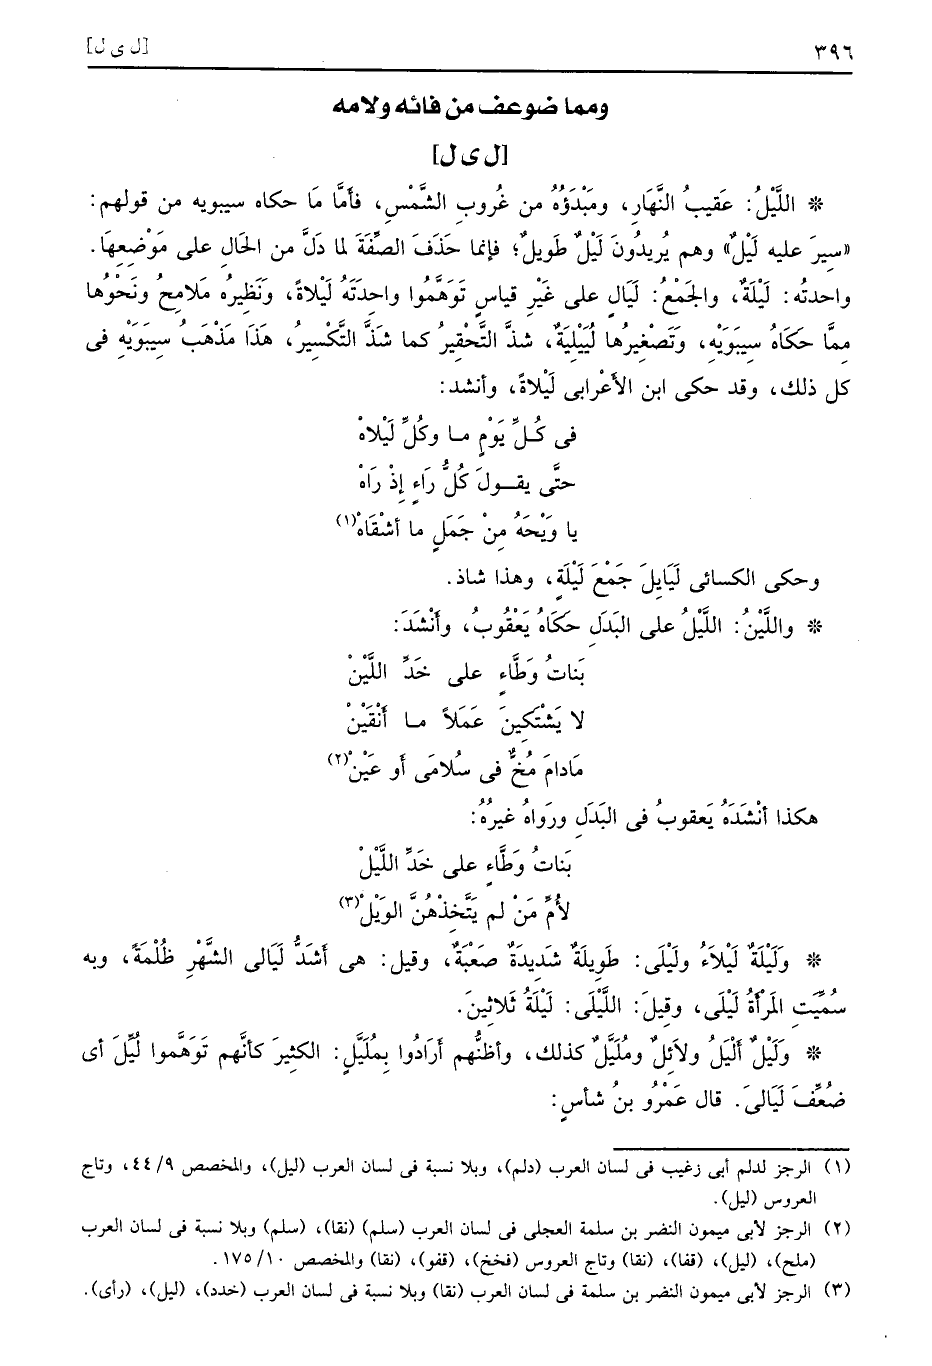 ٣٩٦
[ل ى ل]
ومما ضوعف من فائه ولامه
[ل ى ل]
* اللَّيْلُ: عَقيبُ النَّهَارِ، ومَبْدَؤُهُ من غُروبِ الشَّمْسِ، فأمَّا مَا حكاه سيبويه من قولهم:
«سيرَ عليه لَيْلٌ» وهم يُريدُونَ لَيْلٌ طَويلٌ؛ فإنما حَذَفَ الصِّفَةَ لما دَلَّ من الحَالِ على مَوْضِعِهَا.
واحدتُه: لَيْلَةٌ، والجَمْعُ: لَيَالٍ على غَيْرِ قياسٍ تَوَهَّمُوا واحدَتَهُ لَيْلاةً، ونَظيرُه مَلامحُ ونَحْوُها
ممَّا حكَاهُ سيبَوَيْهِ، وتَصْغيرُها لُيَيْلِيَةٌ، شذَّ التَّحْقِيرُ كما شَذَّ التَّكْسِيرُ، هَذَا مَذْهَبُ سيبَوَيْهِ فى
كل ذلك، وقد حكى ابن الأعْرابى لَيْلاةً، وأنشد:
فى كُلِّ يَوْمٍ ما وكُلِّ لَيْلاهْ
حتَّى يقولَ كُلُّ رَاءٍ إذْ رَاهْ
يا وَيْحَهُ مِنْ جَمَلٍ ما أشْقَاهْ(١)
وحكى الكسائى لَيَايلَ جَمْعَ لَيْلَةٍ، وهذا شاذ.
* واللَّيْنُ: اللَّيْلُ على البَدَلِ حكَاهُ يَعْقُوبُ، وأنْشَدَ:
بَناتُ وَطَّاءٍ على خَدِّ اللَّيْنْ
لا يَشْتَكِينَ عَمَلاً ما أنْقَيْنْ
مَادامَ مُخٌّ فى سُلامَى أو عَيْنْ(٢)
هكذا أنْشَدَهُ يَعقوبُ فى البَدَلِ ورَواهُ غيرُهُ:
بَناتُ وَطَّاءٍ على خَدِّ اللَّيْلْ
لأُمِّ مَنْ لم يَتَّخِذْهُنَّ الوَيْلْ(٣)
* وَلَيْلَةٌ لَيْلاَءُ ولَيْلَى: طَويلةٌ شَديدَةٌ صَعْبَةٌ، وقيل: هى أشَدُّ لَيَالى الشَّهْرِ ظُلْمَةً، وبه
سُمِّيَتِ المَرْأةُ لَيْلَى، وقيلَ: اللَّيْلَى: لَيْلَةُ ثَلاثينَ.
* ولَيْلٌ ألْيَلُ ولاَئِلٌ ومُلَيَّلٌ كذلك، وأظنُّهم أرَادُوا بِمُلَيَّلٍ: الكثيرَ كأنَّهم تَوَهَّموا لُيِّلَ أى
ضُعِّفَ لَيَالىَ. قال عَمْرُو بنُ شأسٍ:
(١) الرجز لدلم أبى زغيب فى لسان العرب (دلم)، وبلا نسبة فى لسان العرب (ليل)، والمخصص ٤٤/٩، وتاج
العروس (ليل).
(٢) الرجز لأبى ميمون النضر بن سلمة العجلى فى لسان العرب (سلم) (نقا)، (سلم) وبلا نسبة فى لسان العرب
(ملح)، (ليل)، (قفا)، (نقا) وتاج العروس (فخخ)، (قفو)، (نقا) والمخصص ١٧٥/١٠.
(٣) الرجز لأبى ميمون النضر بن سلمة فى لسان العرب (نقا) وبلا نسبة فى لسان العرب (خدد)، (ليل)، (رأى).